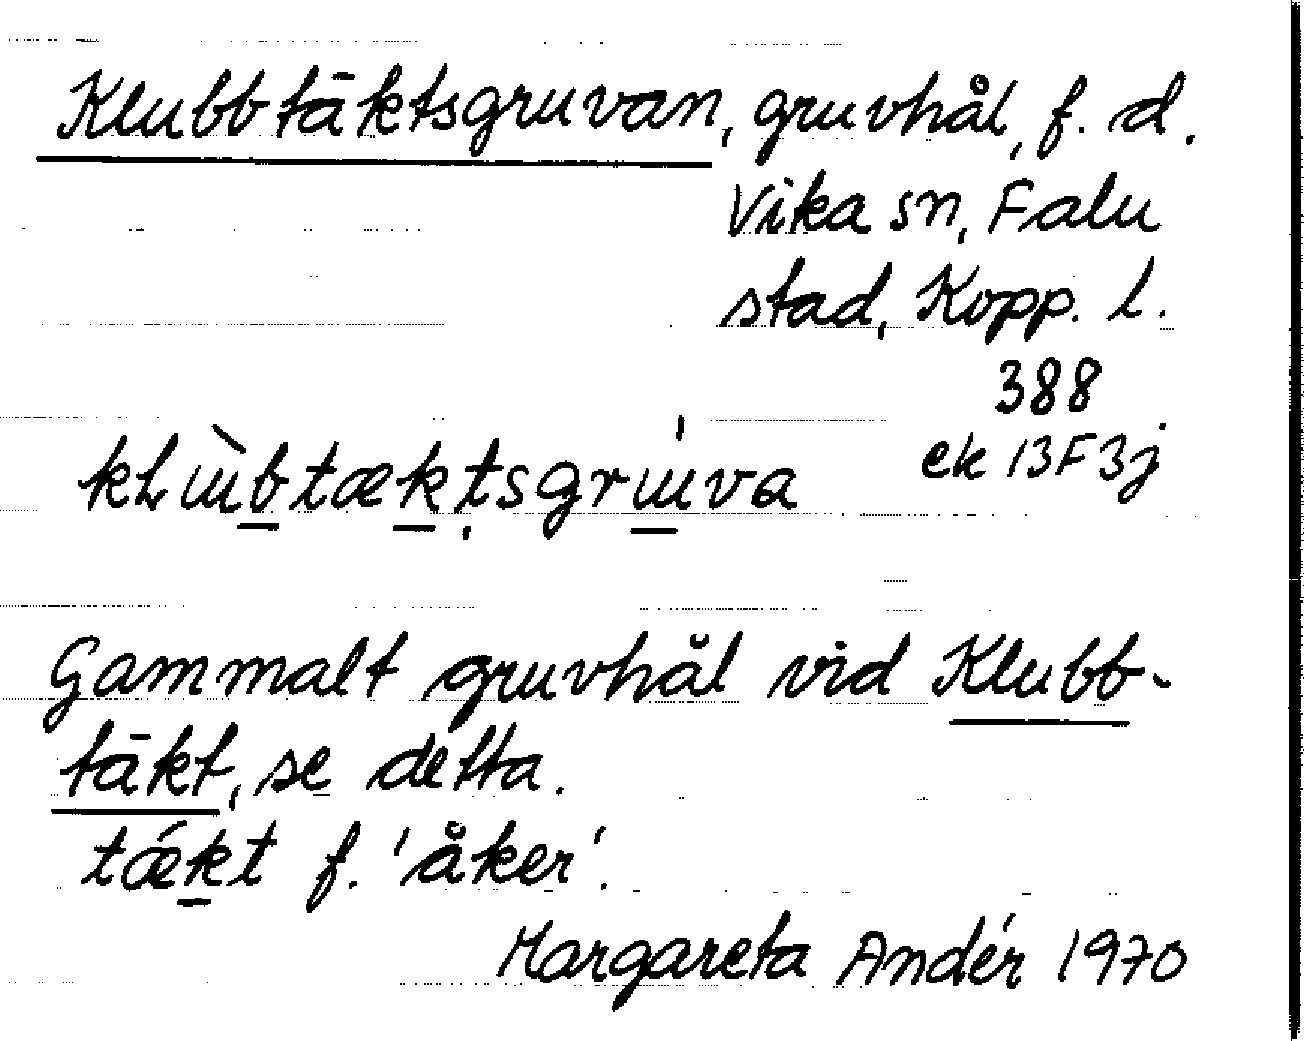 Klubbtäktsgruvan, gruvhål, f. d.
Vika sn, Falu
stad, Kopp. l.
388
ek 13F3j
Gammalt gruvhål vid Klubb-
täkt, se detta.
tǽkt f. 'åker'.
Margareta Andér 1970